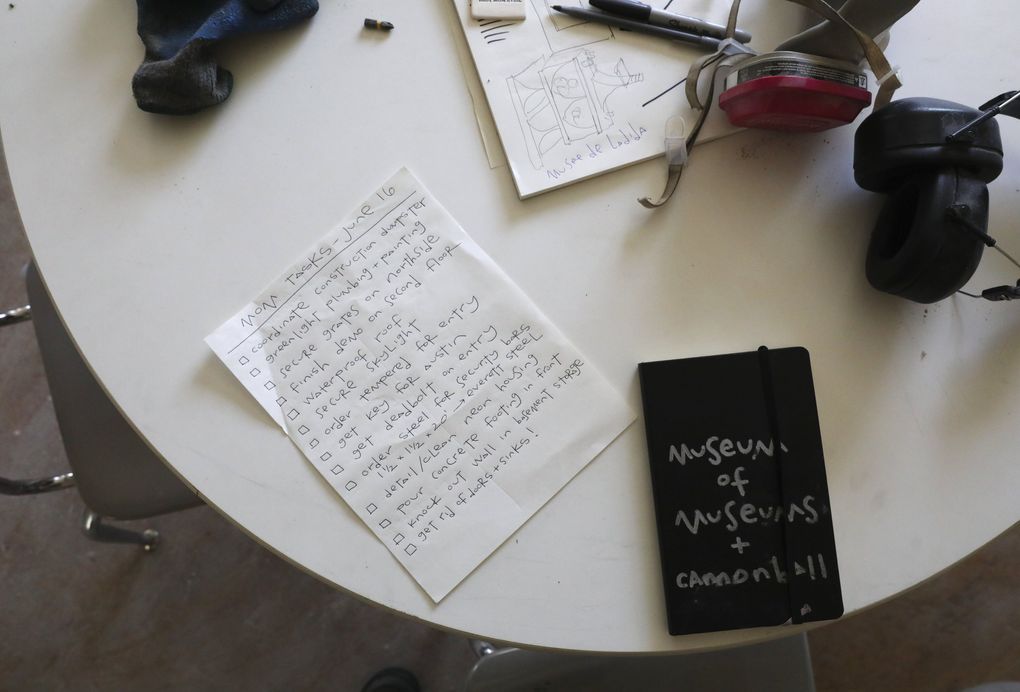 Musee de Ladida
MOM TASKS - June 16
coordinate construction dumpster
greenlight plumbing + painting
secure grates on northside
finish demo on second floor
waterproof roof
secure skylight
order tempered for entry
get key for austin
get deadbolt on entry
order steel for security bars
1½ x 1½ x 20' → everett steel
detail/clean neon housing
pour concrete footing in front
knock out wall in basement storge
get rid of doors + sinks!
Museum
of
Museums
+
cannonball